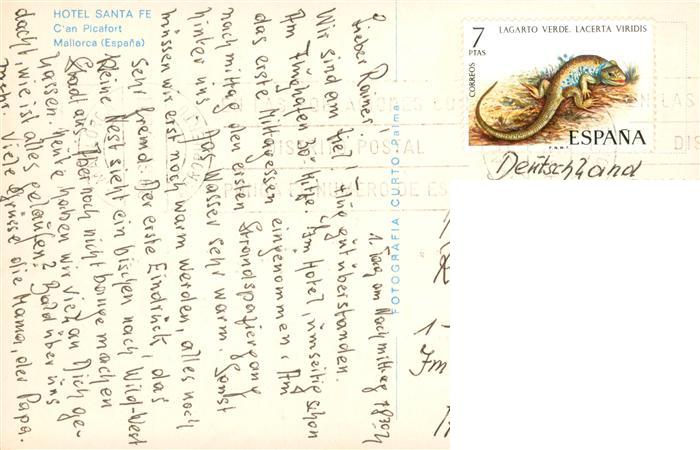 HOTEL SANTA FE
C'an Picafort
Mallorca (España)
FOTOGRAFIA CURTO - Palma
7
PTAS
CORREOS
LAGARTO VERDE. LACERTA VIRIDIS
F.N.M.T.
ESPAÑA
DISTRITO POSTAL
Deutschland
1. Tag am Nachmittag 18³⁰ h
Lieber Rainer!
Wir sind am Ziel! Flug gut überstanden.
Am Flughafen 30° Hitze. Im Hotel, umseitig schon
das erste Mittagessen eingenommen. Am
nachmittag den ersten Strandspaziergang
hinter uns. Das Wasser sehr warm. Sonst
müssen wir erst noch warm werden, alles noch
sehr fremd. Der erste Eindruck, das
kleine Nest sieht ein bischen nach Wild-West
Stadt aus. Aber noch nicht bange machen
lassen. Heute haben wir viel an Dich ge-
dacht, wie ist alles gelaufen? Bald über uns
mehr. Viele Grüsse die Mama, der Papa.
1-
Jm